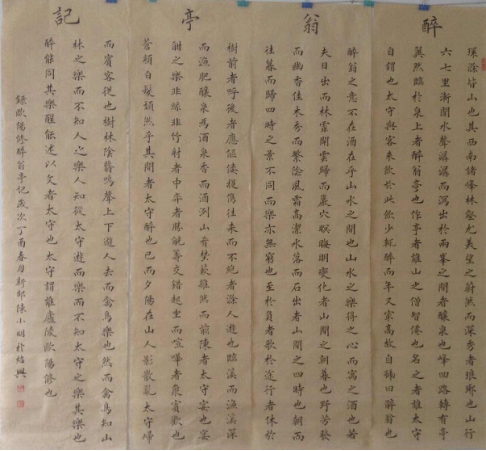 醉翁亭記
環滁皆山也其西南諸峰林壑尤美望之蔚然而深秀者琅琊也山行
六七里漸聞水聲潺潺而瀉出於兩峯之間者釀泉也峰回路轉有亭
翼然臨於泉上者醉翁亭也作亭者誰山之僧智僊也名之者誰太守
自謂也太守與客來飲於此飲少輒醉而年又最高故自號曰醉翁也
醉翁之意不在酒在乎山水之間也山水之樂得之心而寓之酒也若
夫日出而林霏開雲歸而巖穴暝晦明變化者山間之朝暮也野芳發
而幽香佳木秀而繁陰風霜高潔水落而石出者山間之四時也朝而
往暮而歸四時之景不同而樂亦無窮也至於負者歌於途行者休於
樹前者呼後者應傴僂提攜往來而不絕者滁人遊也臨溪而漁溪深
而漁肥釀泉為酒泉香而酒洌山肴野蔌雜然而前陳者太守宴也宴
酣之樂非絲非竹射者中弈者勝觥籌交錯起坐而喧嘩者衆賓歡也
蒼顏白髮頹然乎其間者太守醉也已而夕陽在山人影散亂太守歸
而賓客從也樹林陰翳鳴聲上下遊人去而禽鳥樂也然而禽鳥知山
林之樂而不知人之樂人知從太守遊而樂而不知太守之樂其樂也
醉能同其樂醒能述以文者太守也太守謂誰廬陵歐陽修也
錄歐陽修醉翁亭記歲次丁酉春月陳小明於紹興